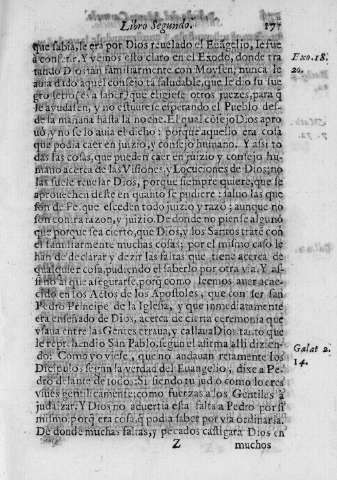 Libro Segundo.
177
que sabia, le era por Dios reuelado el Euágelio, se fue
a conferir. Y vemos esto claro en el Exodo, donde tra
tando Dios tan familiarmente con Moysen, nunca le
auia dado aquel consejo tá saludable, que le dio su sue
gro Ietro: es a saber, q̃ eligiesse otros juezes, para q̃
le ayudassen, y no estuuiesse esperando el Pueblo des-
de la mañana hasta la noche. El qual consejo Dios apro
uò, y no se lo auia el dicho: porque aquello era cosa
que podia caer en juizio, y consejo humano. Y assi to
das las cosas, que pueden caer en juizio y consejo hu-
mano acerca de las Visiones y Locuciones de Dios; no
las suele reuelar Dios, porque siempre quiere, que se
aprouechen deste en quanto se pudiere: saluo las que
son de Fe, que exceden todo juizio y razò; aunque no
son contra razon, y juizio. De donde no piense alguno
que porque sea cierto, que Dios, y los Santos traté con
el familiarmente muchas cosas; por el mismo caso le
han de declarar y dezir las faltas que tiene acerca de
qualquier cosa, pudiendo el saberlo por otra via. Y as-
si no ai que assegurarse, porq̃ como leemos auer acae-
cido en los Actos de los Apostoles, que con ser san
Pedro Principe de la Iglesia, y que inmediatamente
era enseñado de Dios, acerca de cierta ceremonia que
vsaua entre las Gentes erraua, y callaua Dios: tanto que
le reprehendio San Pablo, segun el afirma alli dizien-
do: Como yo viesse, que no andauan retamente los
Dicipulos segun la verdad del Euangelio, dixe a Pe-
dro delante de todos: Si siendo tu judio como lo eres
viues gentilicamente: como fuerzas a los Gentiles à
judaizar. Y Dios no aduertia esta falta a Pedro por si
mismo: porq̃ era cosa, q̃ podia saber por via ordinaria.
De donde muchas faltas, y pecados castigara Dios en
Z
muchos
Exo. 18.
20.
Galat 2.
14.